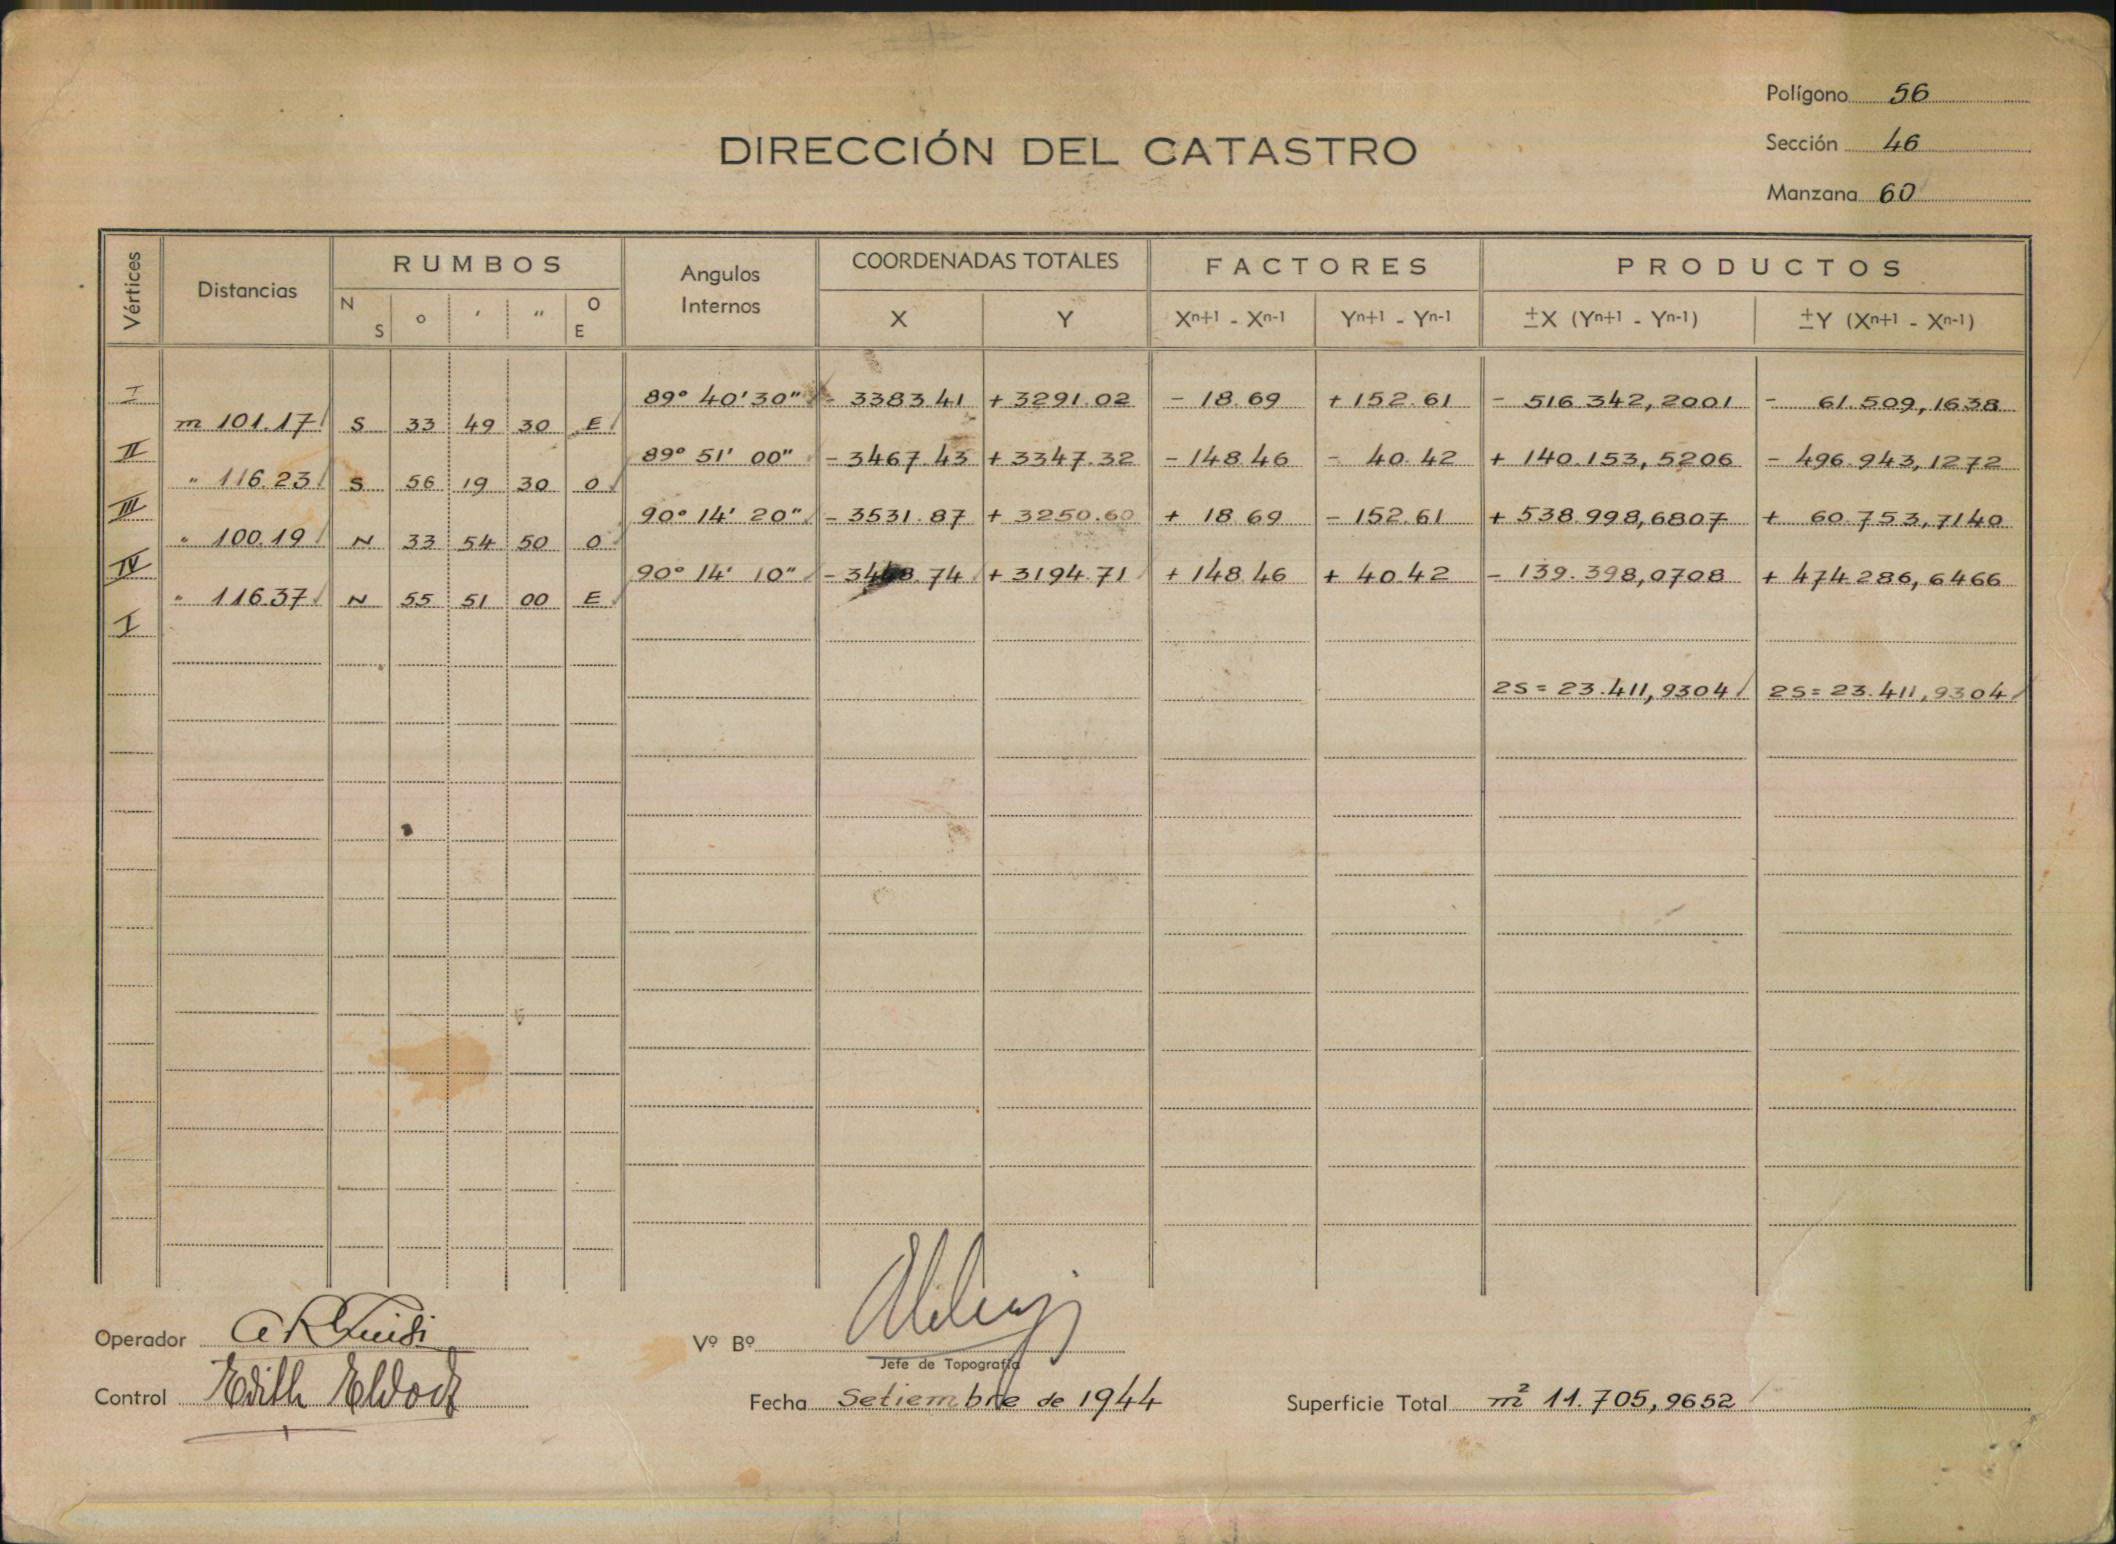 Polígono 56
Sección 46
Manzana 60
DIRECCIÓN DEL CATASTRO
Vértices Distancias RUMBOS Angulos Internos COORDENADAS TOTALES FACTORES PRODUCTOS
N S o ' " O E X Y Xn+1 - Xn-1 Yn+1 - Yn-1 ±X (Yn+1 - Yn-1) ±Y (Xn+1 - Xn-1)
I 89° 40' 30" - 3383.41 + 3291.02 - 18.69 + 152.61 - 516.342,2001 - 61.509,1638
m 101.17 S 33 49 30 E
II 89° 51' 00" - 3467.43 + 3347.32 - 148.46 - 40.42 + 140.153,5206 - 496.943,1272
" 116.23 S 56 19 30 O
III 90° 14' 20" - 3531.87 + 3250.60 + 18.69 - 152.61 + 538.998,6807 + 60.753,7140
" 100.19 N 33 54 50 O
IV 90° 14' 10" .74 + 3194.71 + 148.46 + 40.42 - 139.398,0708 + 474.286,6466
" 116.37 N 55 51 00 E
I
2S = 23.411,9304 2S = 23.411,9304
Operador
Vº Bº
Jefe de Topografía
Control Edith
Fecha Setiembre de 1944
Superficie Total m² 11.705,9652